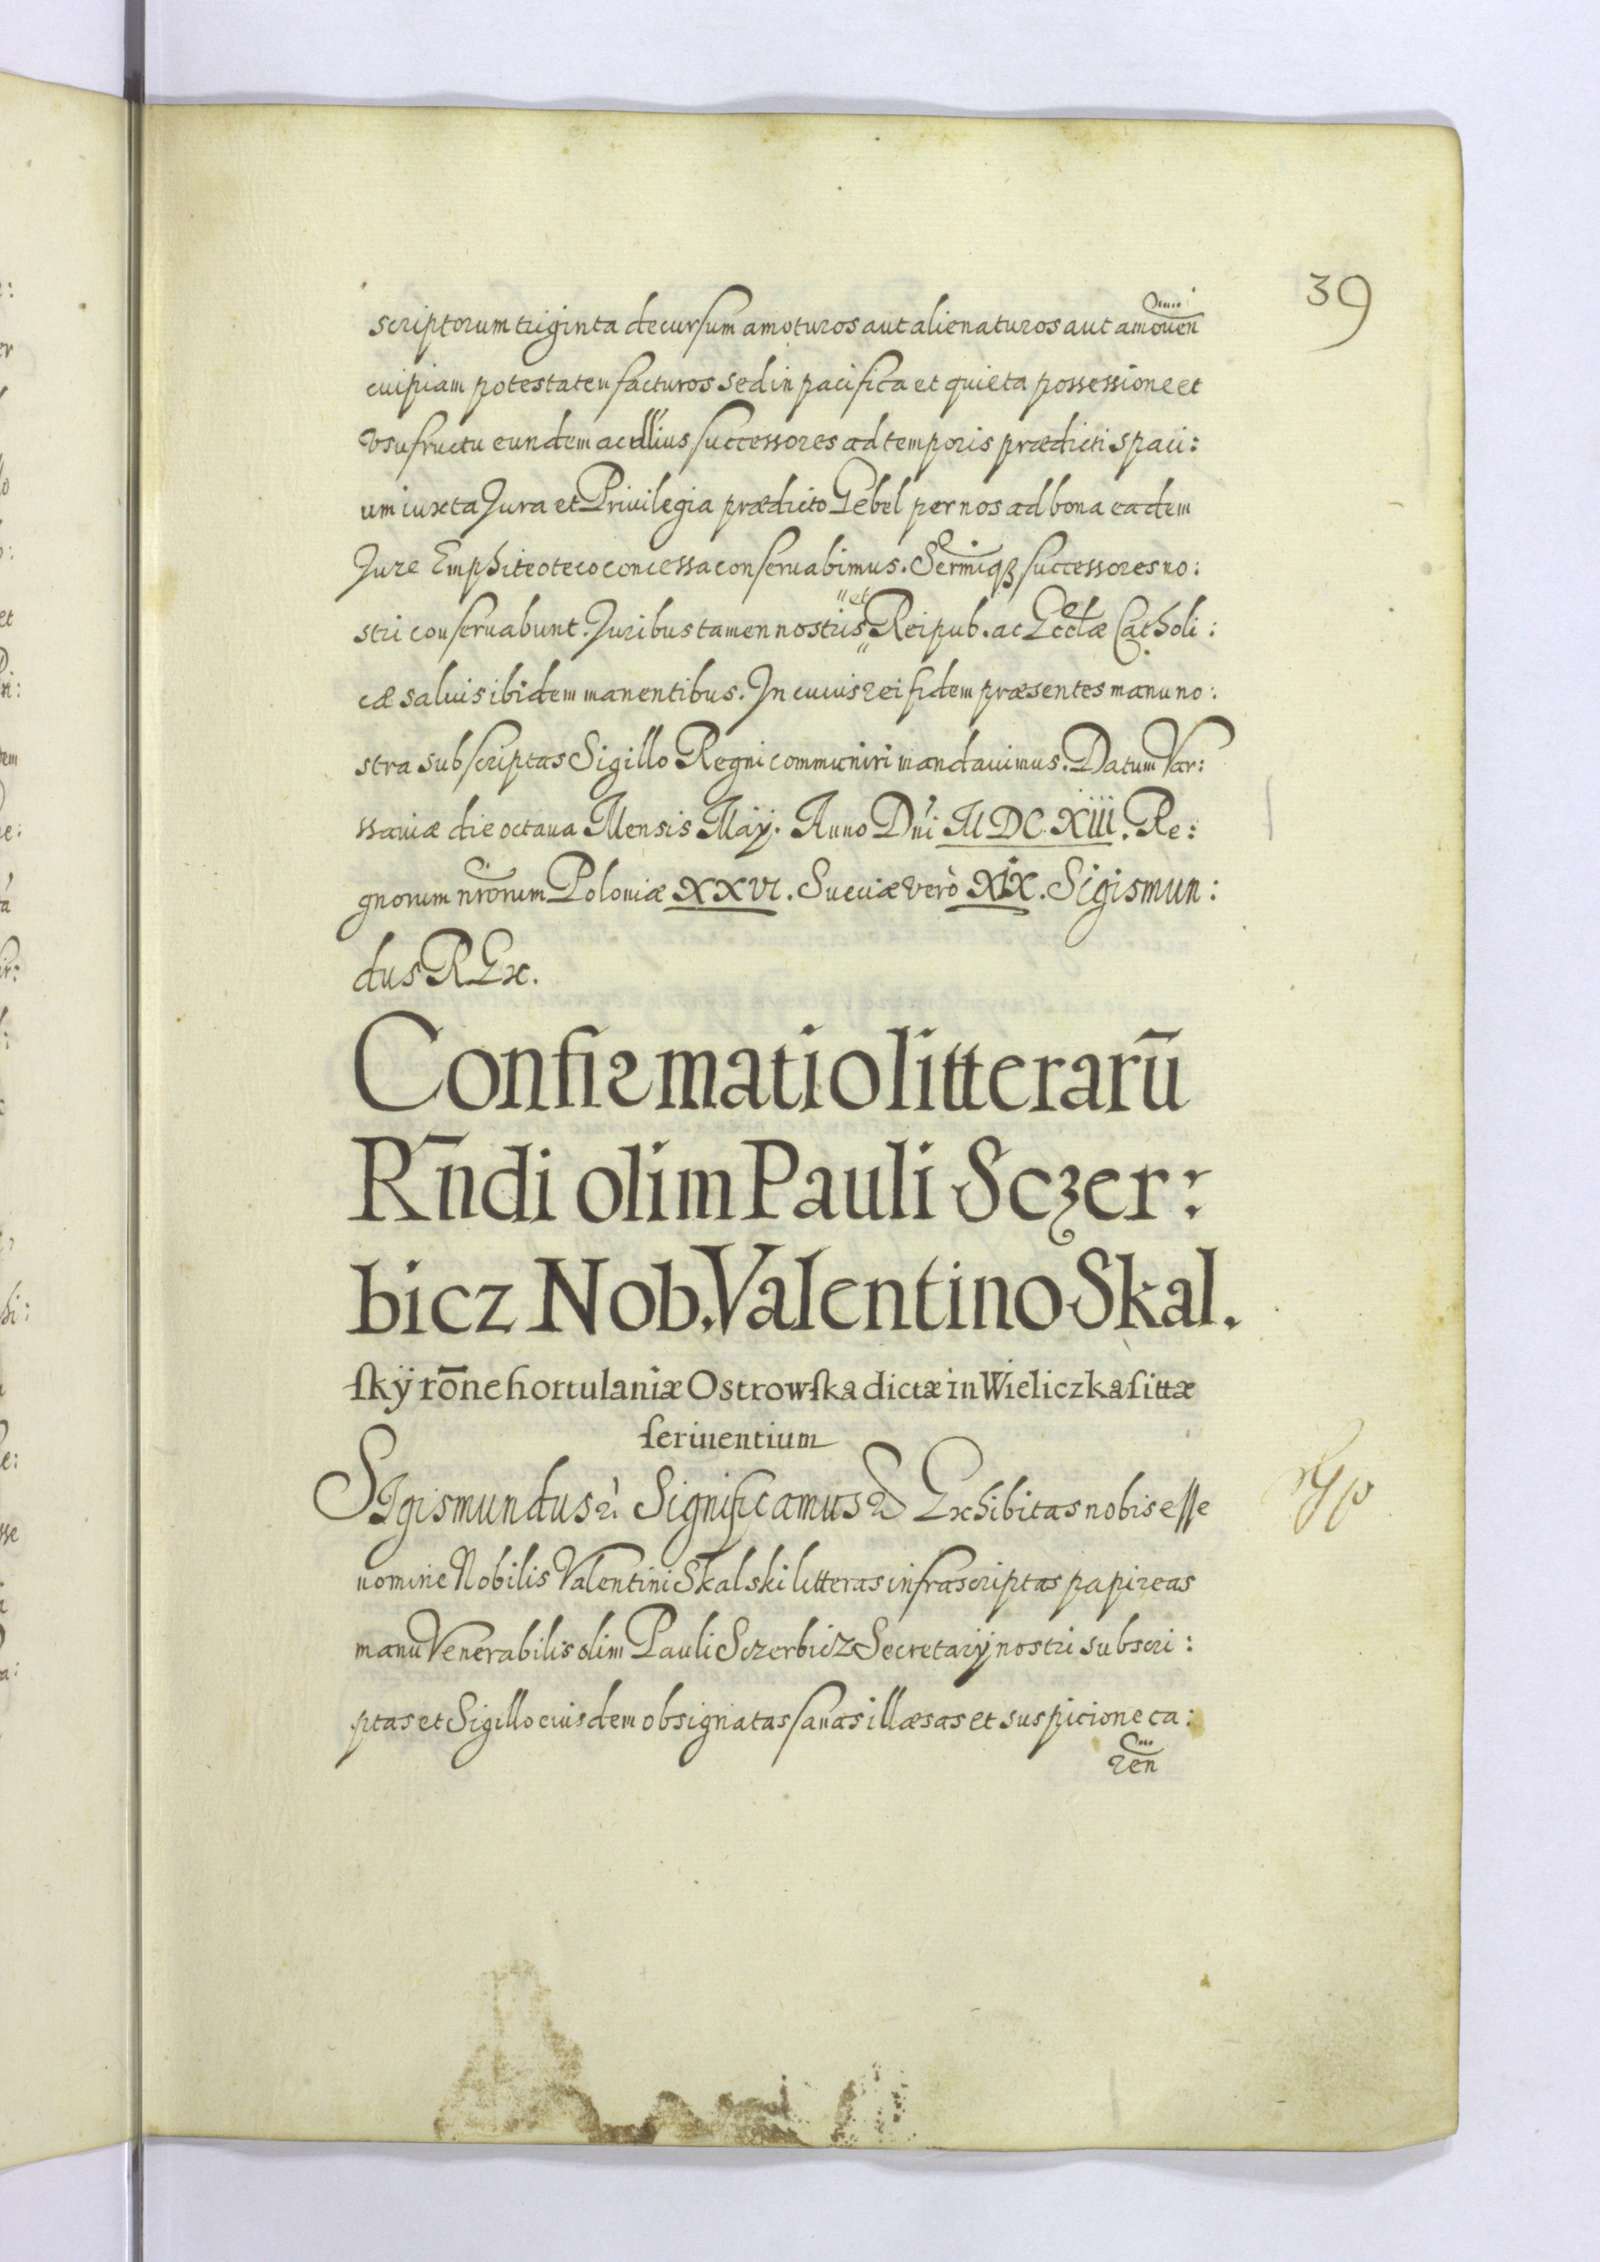 39
scriptorum triginta decursum amoturos aut alienaturos aut amouen
cuipiam potestatem facturos sed in pacifica et quieta possessione et
vsufructu eundem ac illius successores ad temporis prædicti spaci:
um iuxta Jura et Privilegia prædicto Gebel per nos ad bona eadem
Jure Emphiteoteco concessa conseruabimus. Sermiq3 successores no:
stri conseruabunt. Juribus tamen nostris et Reipub. ac Ecclæ Catholi:
cæ saluis ibidem manentibus. In cuius rei fidem præsentes manu no:
stra subscriptas Sigillo Regni communiri mandauimus. Datum Var:
ssauiæ die octaua Mensis Maÿ. Anno Dni MDCXIII. Re:
gnorum nrorum Poloniæ XXVI. Sueciæ verò XIX. Sigismun:
dus REx.
Confirmatio litterarū
Rn̄di olim Pauli Sczer:
bicz Nob. Valentino Skal.
skÿ rōne hortulaniæ Ostrowska dictæ in Wieliczka sittæ
seruientium
SIgismundus Significamus Exhibitas nobis esse
nomine Nobilis Valentini Skalski litteras infrascriptas papireas
manu Venerabilis olim Pauli Sczerbicz Secretarÿ nostri subscri:
ptas et Sigillo eiusdem obsignatas sanas illæsas et suspicione ca:
ren